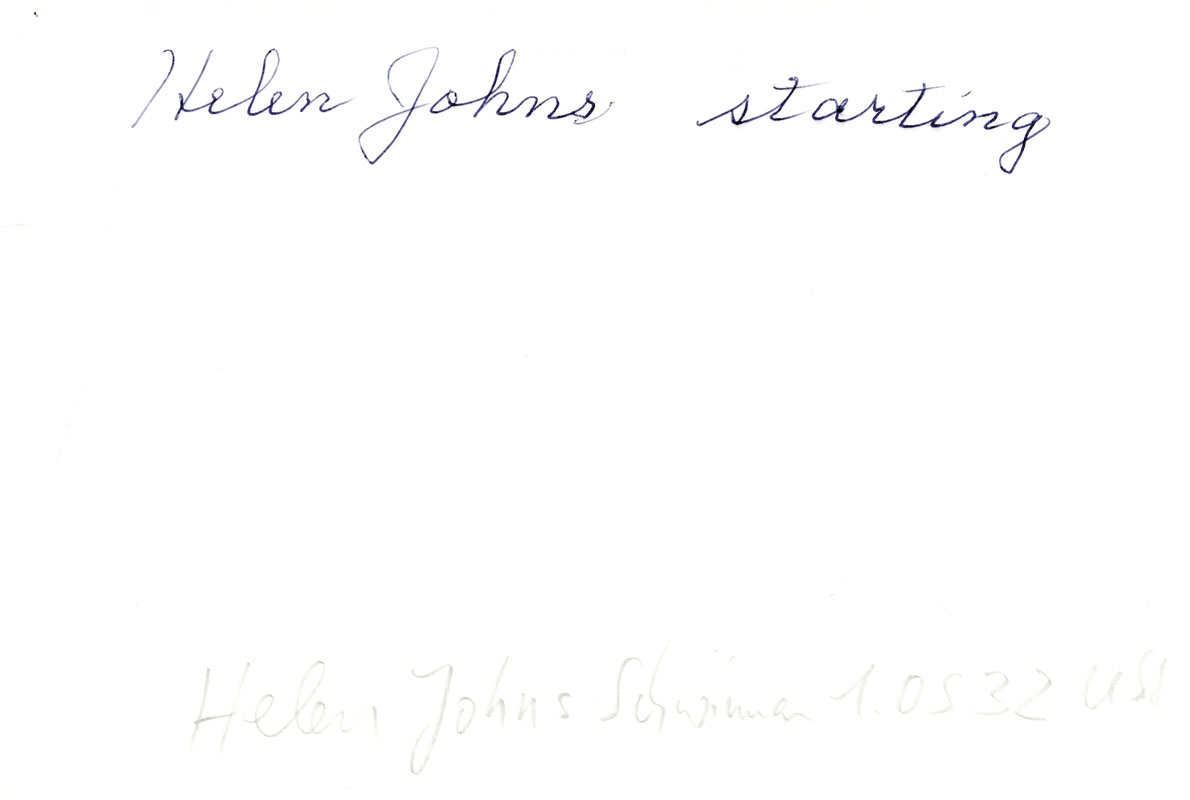 Helen Johns starting
Helen Johns Schwimmen 1. OS 32 USA